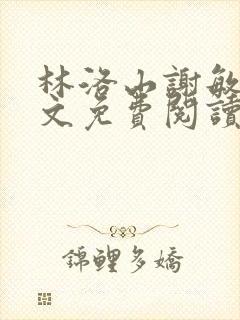 林洛山謝敏
文免費閱讀
錦鯉多嬌